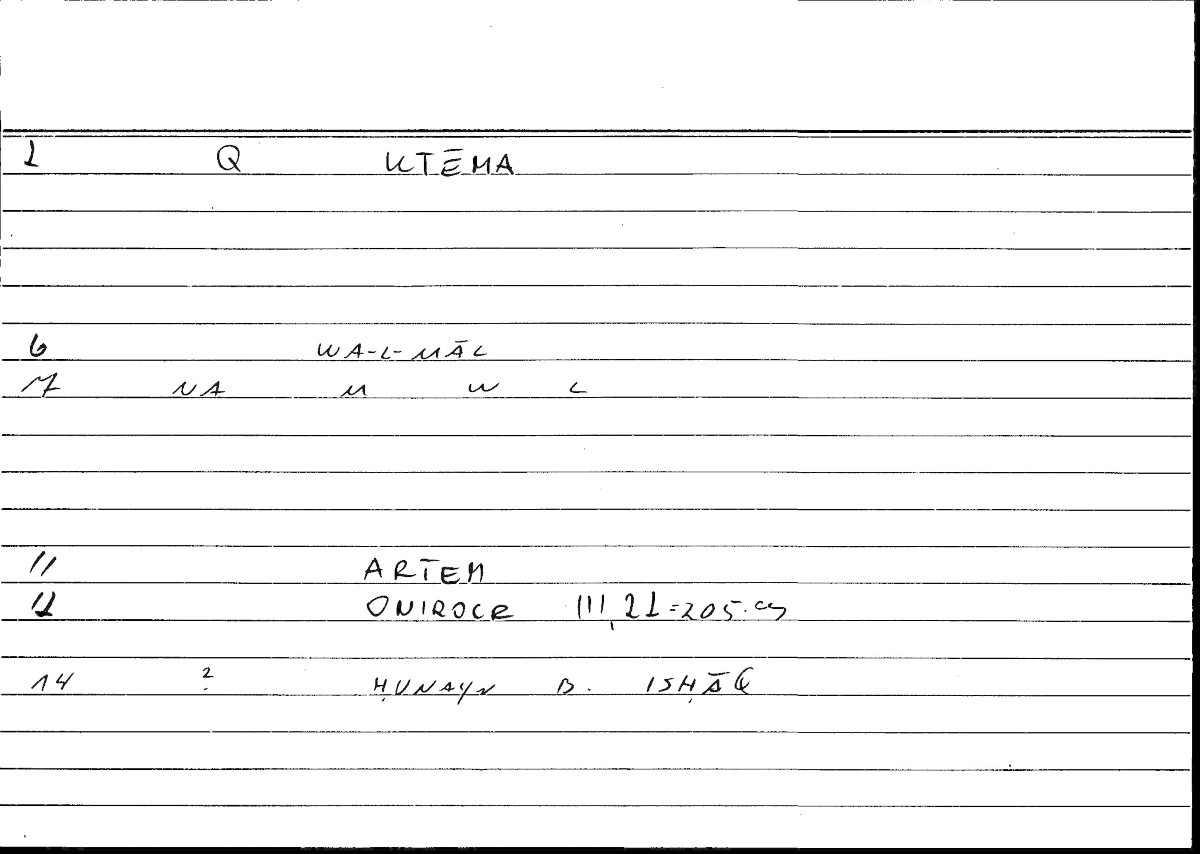 1 Q KTĒMA
6 WA-L-MĀL
7 NA M W L
11 ARTEM
12 ONIROCR III, 21 = 205.
14 ? ḤUNAYN B. ISḤĀQ